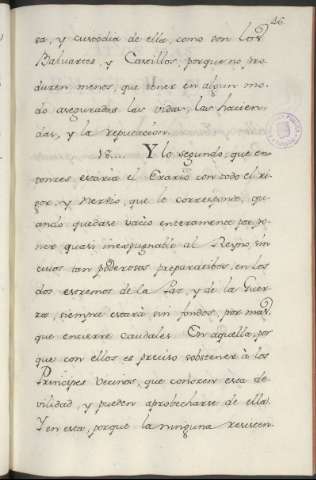 46
ra, y custodia de ella, como son los
Baluartes, y Castillos, porque no pro
duzen menos, que tener en algun mo
do aseguradas las vidas, las hacien
das, y la reputacion.
Y lo segundo, que en
tonces estaria el Erario con todo el ri
gor, y nerbio, que le corresponde, qu
ando quedase vacio enteramente por po
ner quasi inexpugnable al Reyno, sin
cuios tan poderosos preparatibos, en los
dos extremos de la Paz, y de la Guer
ra, siempre estará sin fondos, por mas
que encierre caudales. En aquella, por
que con ellos es preciso sobstener à los
Principes vecinos, que conocen esta de
vilidad, y pueden aprobecharse de ella.
Y en esta, porque la ninguna resisten